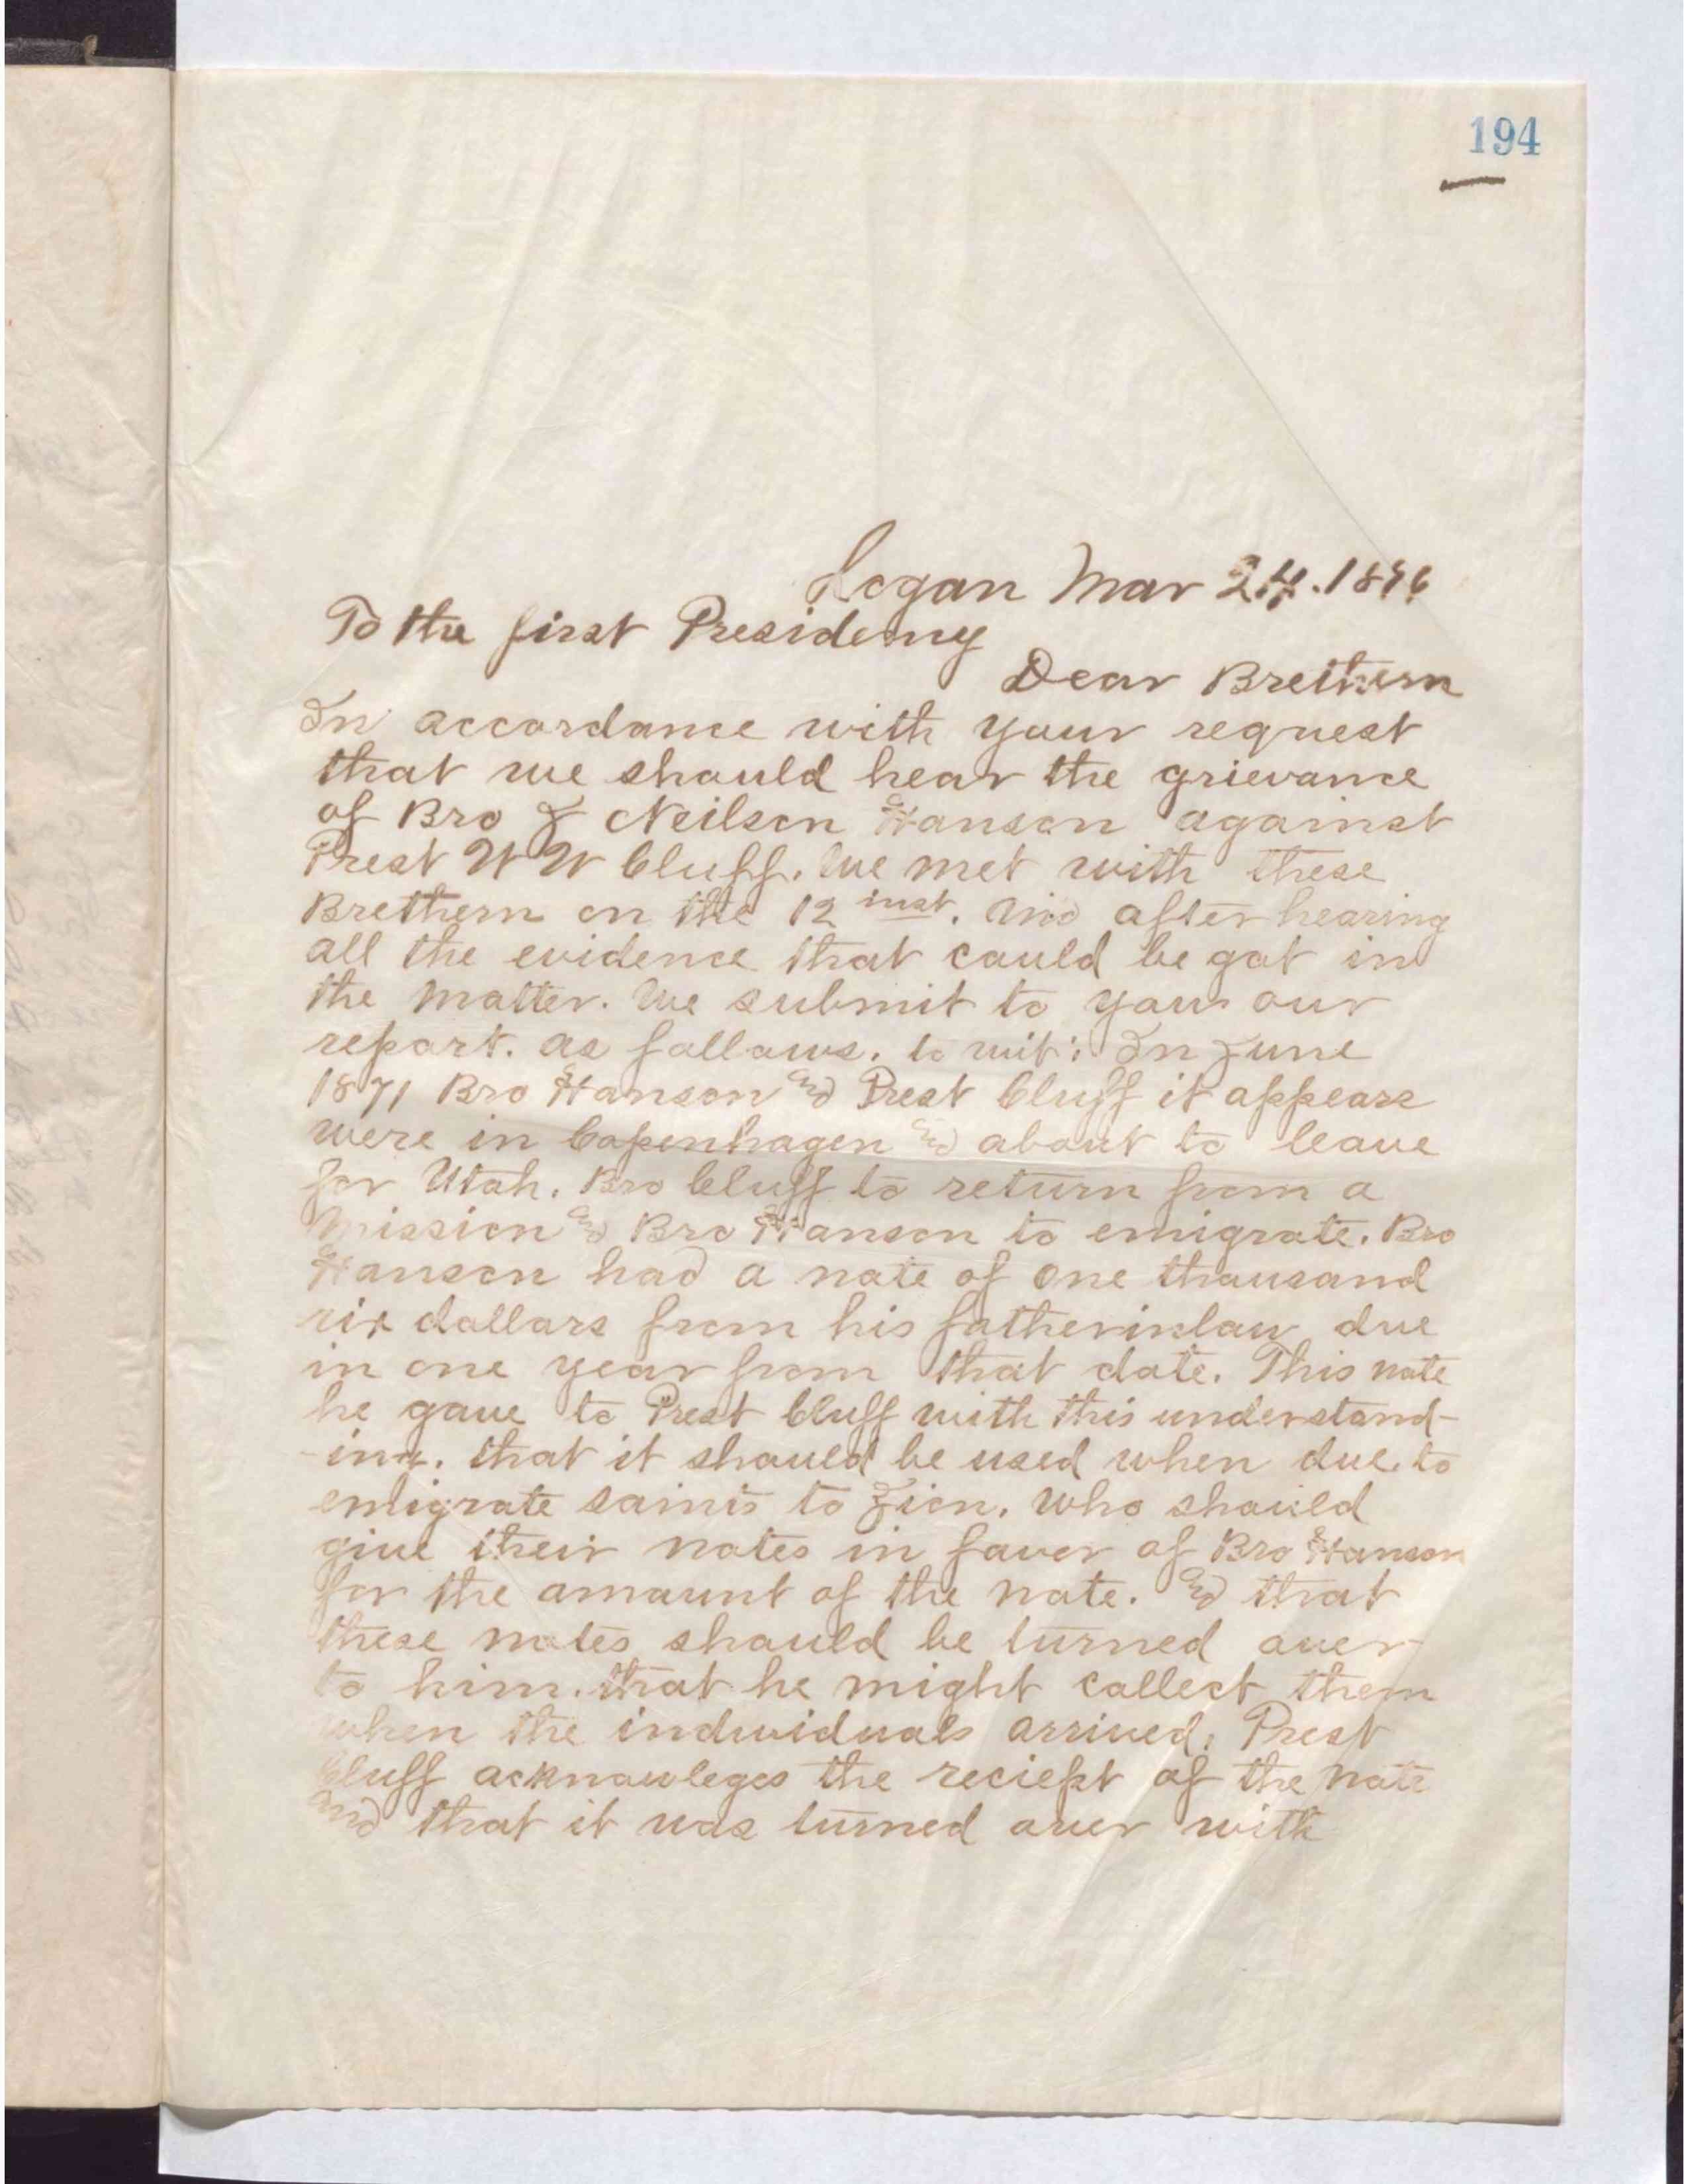 194
Logan Mar 24. 1896
To the first Presidency
Dear Brethern
In accordance with your request
that we should hear the grievance
of Bro J Neilson Hanson against
Prest W W Cluff. We met with these
Brethern on the 12 inst. And after hearing
all the evidence that could be got in
the matter. We submit to you our
report. as follows. to wit: In June
1871 Bro Hanson and Prest Cluff it appears
were in Copenhagen and about to leave
for Utah. Bro Cluff to return from a
Mission and Bro Hanson to emigrate. Bro
Hanson had a note of one thousand
rix dollars from his fatherinlaw due
in one year from that date. This note
he gave to Prest Cluff with this understand-
-ing. that it should be used when due to
emigrate saints to Zion. Who should
give their notes in favor of Bro Hanson
for the amount of the note. and that
these notes should be turned over
to him. that he might collect them
when the individuals arrived. Prest
Cluff acknowleges the reciept of the note
and that it was turned over with